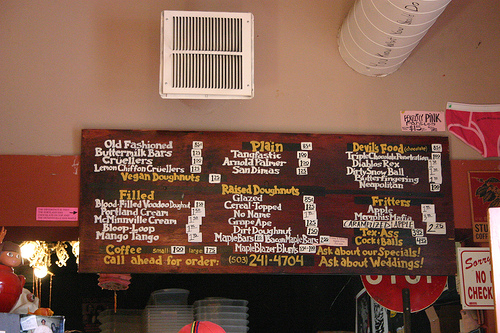 Old Fashioned
Buttermilk Bars
Cruellers
Lemon Chiffon Cruellers
Vegan Doughnuts
Filled
Blood-Filled Voodoo Doughnut
Portland Cream
McMinnville Cream
Bloop-Loop
Mango Tango
Coffee small large
Call ahead for order:
Plain
Tangfastic
Arnold Palmer
San Dimas
Raised Doughnuts
Glazed
Cereal-Topped
No Name
Grape Ape
Dirt Doughnut
Maple Bars Bacon Maple Bars
Maple Blazer Blunt
(503) 241-4704
Devils Food (chocolate)
Triple Chocolate Penetration
Diablos Rex
Dirty Snow Ball
Butterfingering
Neapolitan
Fritters
Apple
Memphis Mafia
Tex-Ass
Cock & Balls
Ask about our Specials!
Ask about Weddings!
PINK
STOP
Sorry
NO
CHECK